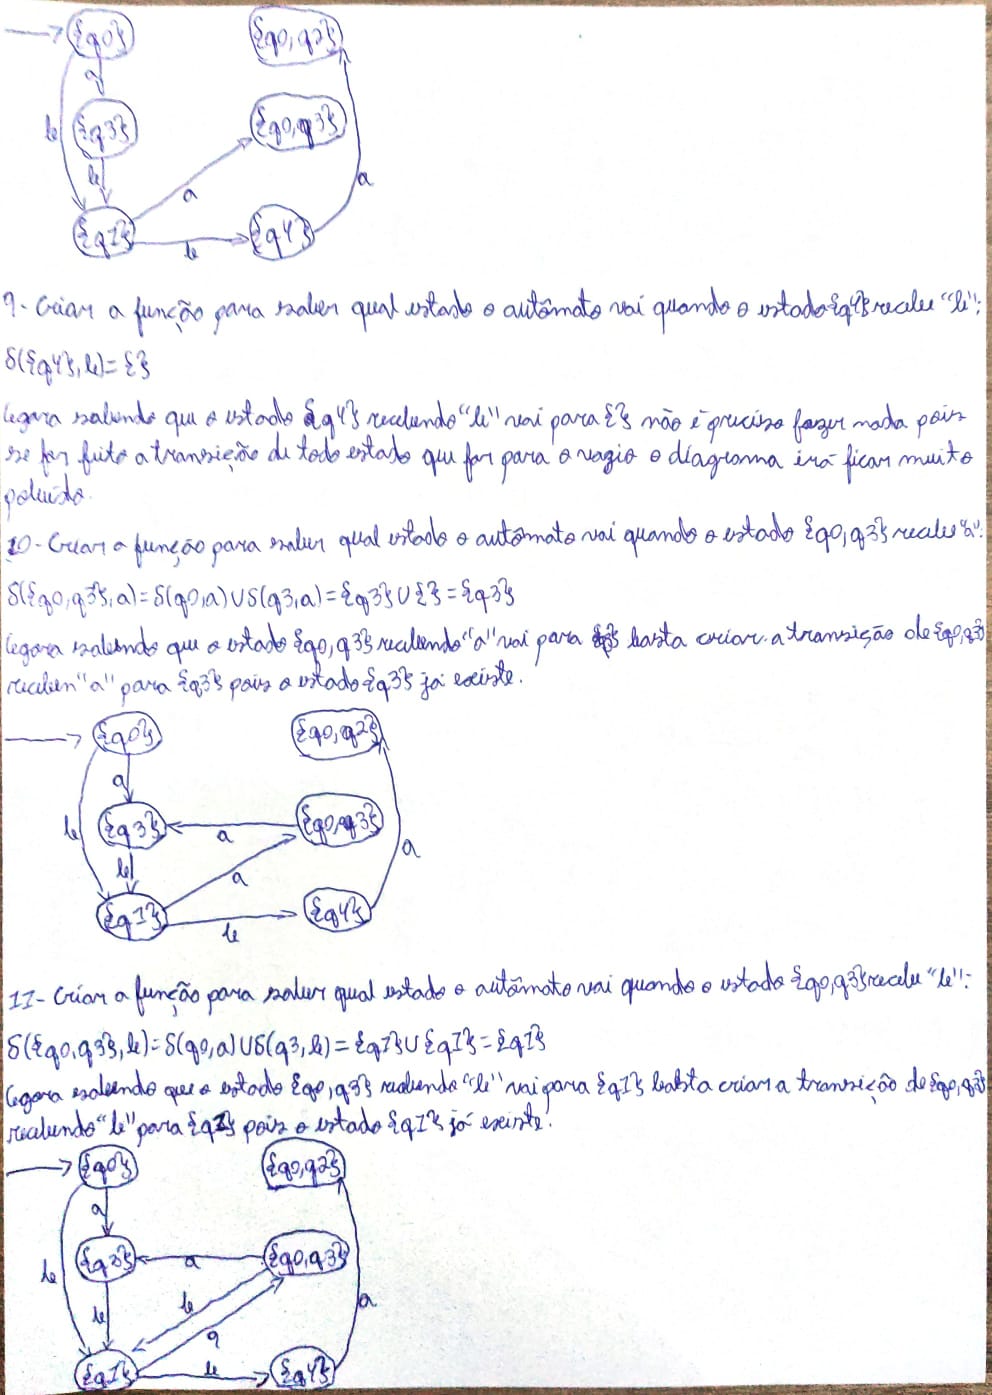 {q0} {q0,q2}
a
b {q3} {q0,q3}
b a a
{q1} b {q4}
9- Criar a função para saber qual estado o autômato vai quando o estado {q4} recebe "b":
δ({q4},b)={}
Agora sabendo que o estado {q4} recebendo "b" vai para {} não é preciso fazer nada pois
se for feito a transição de todo estado que for para o vazio o diagrama irá ficar muito
poluído.
10- Criar a função para saber qual estado o autômato vai quando o estado {q0,q3} recebe "a":
δ({q0,q3},a)=δ(q0,a)∪δ(q3,a)={q3}∪{}={q3}
Agora sabendo que o estado {q0,q3} recebendo "a" vai para basta criar a transição de {q0,q3}
receben "a" para {q3} pois o estado {q3} já existe.
{q0} {q0,q2}
a
b {q3} a {q0,q3}
b a a
{q1} b {q4}
11- Criar a função para saber qual estado o autômato vai quando o estado {q0,q3} recebe "b":
δ({q0,q3},b)=δ(q0,a)∪δ(q3,b)={q1}∪{q1}={q1}
Agora sabendo que o estado {q0,q3} recebendo "b" vai para {q1} basta criar a transição de {q0,q3}
recebendo "b" para {q1} pois o estado {q1} já existe.
{q0} {q0,q2}
a
b {q3} a {q0,q3}
b b a a
{q1} b {q4}